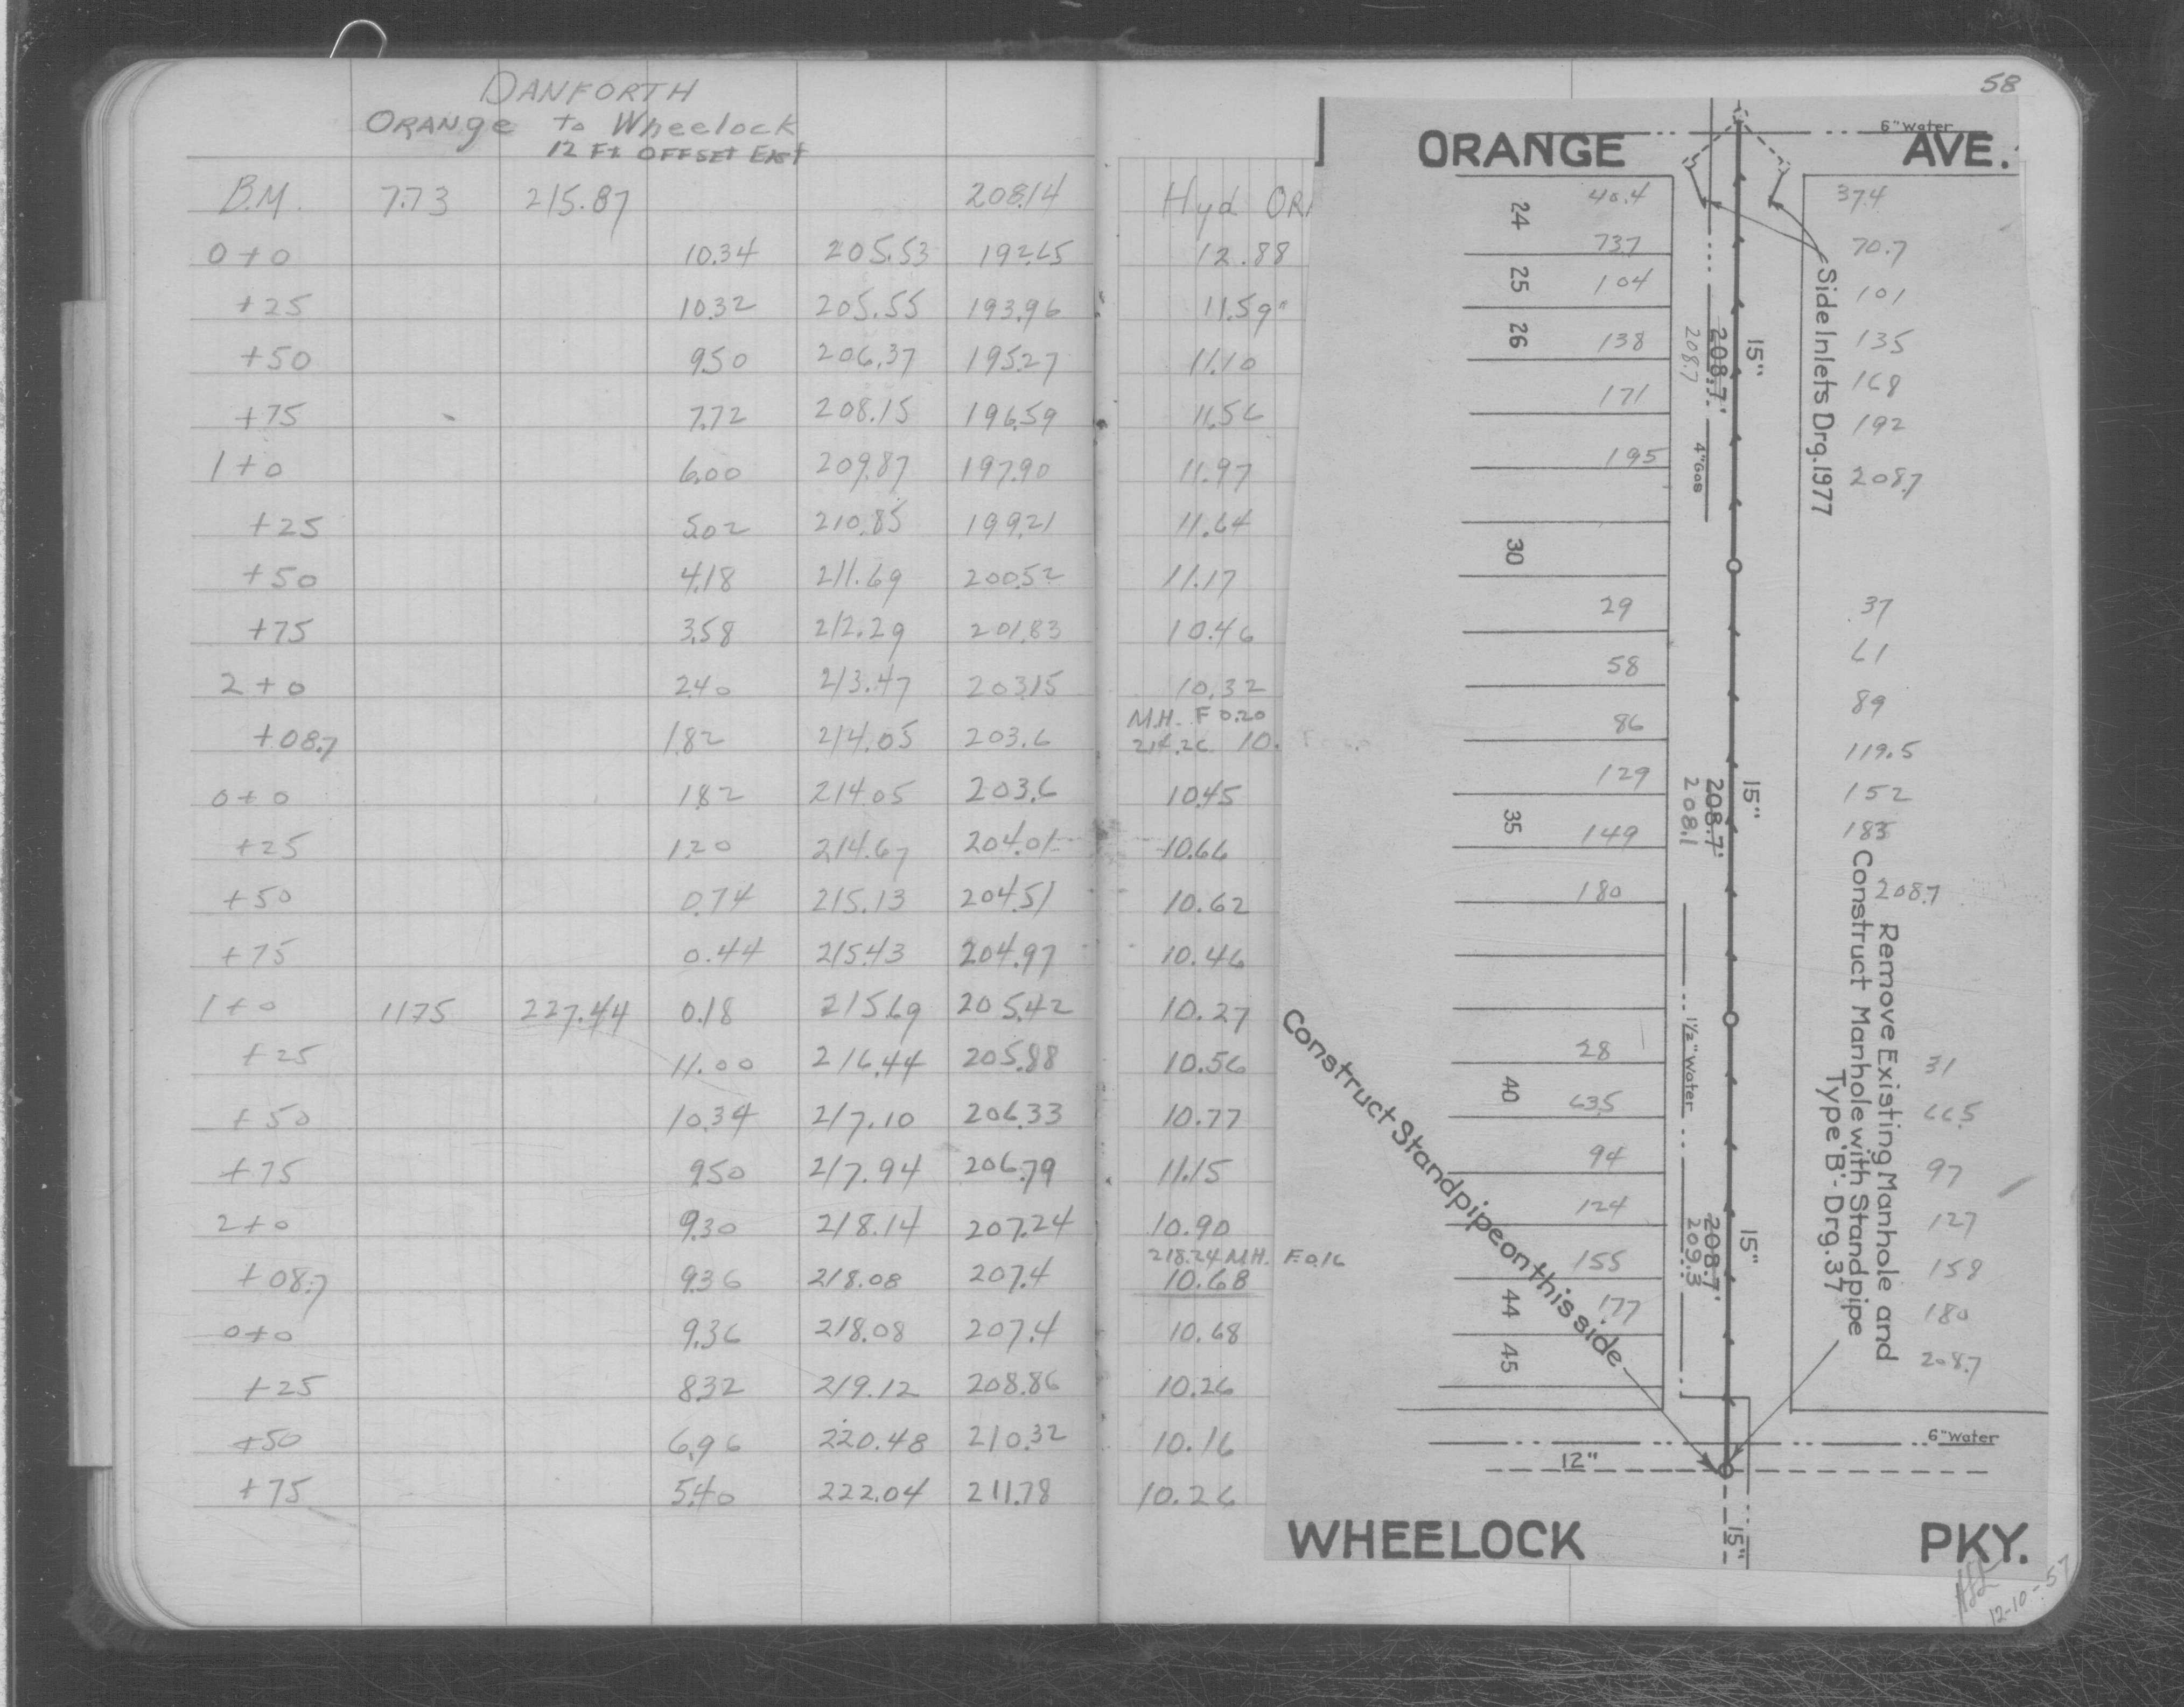 DANFORTH
ORANGE to Wheelock
12 Ft OFFSET EAST
B.M. 7.73 215.87 208.14 Hyd
0+0 10.34 205.53 192.65 12.88
+25 10.32 205.55 193.96 11.59
+50 9.50 206.37 195.27 11.10
+75 7.72 208.15 196.59 11.56
1+0 6.00 209.87 197.90 11.97
+25 5.02 210.85 199.21 11.64
+50 4.18 211.69 200.52 11.17
+75 3.58 212.29 201.83 10.46
2+0 2.40 213.47 203.15 10.32
M.H. F 0.20
+08.7 1.82 214.05 203.6 214.26 10.
0+0 1.82 214.05 203.6 10.45
+25 1.20 214.67 204.01 10.66
+50 0.74 215.13 204.51 10.62
+75 0.44 215.43 204.97 10.46
1+0 11.75 227.44 0.18 215.69 205.42 10.27
+25 11.00 216.44 205.88 10.56
+50 10.34 217.10 206.33 10.77
+75 9.50 217.94 206.79 11.15
2+0 9.30 218.14 207.24 10.90
218.24 M.H. F.0.16
+08.7 9.36 218.08 207.4 10.68
0+0 9.36 218.08 207.4 10.68
+25 8.32 219.12 208.86 10.26
+50 6.96 220.48 210.32 10.16
+75 5.40 222.04 211.78 10.26
58
6" Water
ORANGE AVE.
24 40.4 37.4
73.7 70.7
25 104 101
26 138 135
171 168
195 192
208.7
15"
208.7'
208.7
4" Gas
Side Inlets Drg. 1977
30
29 37
58 61
86 89
129 119.5
35 149 152
180 183
208.7
15"
208.7'
208.1
Remove Existing Manhole and
Construct Manhole with Standpipe
Type 'B' - Drg. 37
Construct Standpipe on this side
1 1/2" Water
28 31
40 63.5 66.5
94 97
124 127
155 158
44 177 180
45 208.7
15"
208.7'
209.3
6" Water
12"
15"
WHEELOCK PKY.
12-10-57